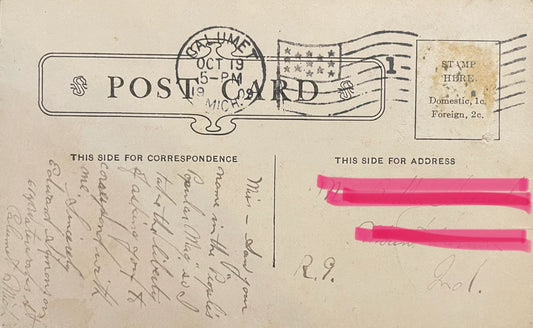 CALUMET
OCT 19
5-PM
1909
MICH.
1
POST CARD
STAMP
HERE.
Domestic, 1c.
Foreign, 2c.
THIS SIDE FOR CORRESPONDENCE
THIS SIDE FOR ADDRESS
Miss - Saw your
name in the "People's
Popular Mag." so I
take the liberty
of asking you to
correspond with
me.
Sincerely
Edward
Calumet, Mich
R.9.
Ind.